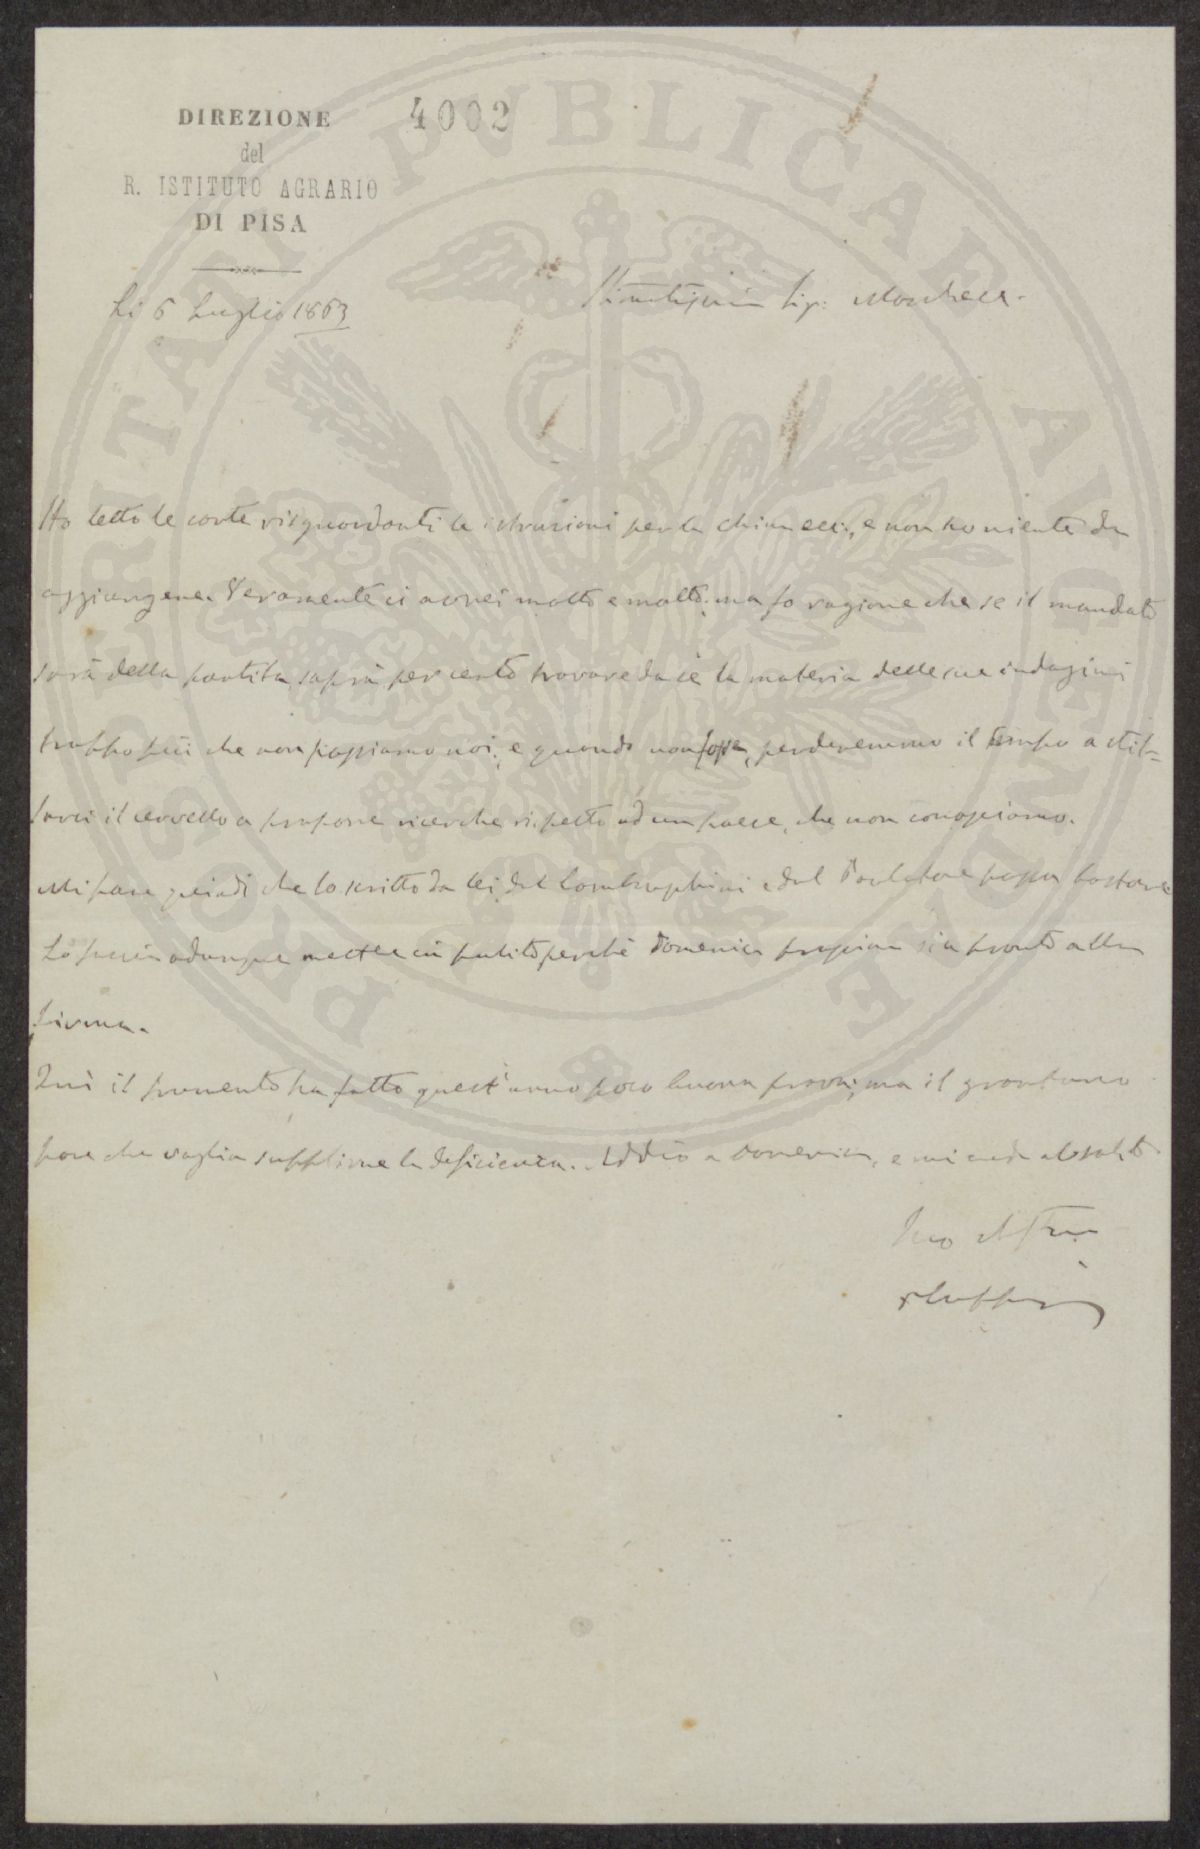 DIREZIONE
del
R. ISTITUTO AGRARIO
DI PISA
4002
Li 6 Luglio 1863
Sig: Marchese.
Ho letto le carte risguardanti le istruzioni per la China ecc., e non ho niente da
aggiungere. Veramente ci avrei molto e molto: ma fo ragione che se il mandato
sarà della partita, saprà per certo trovare da sè la materia delle sue indagini
troppo più che non possiamo noi; e quando non fosse, perderemmo il tempo a stil-
larci il cervello a proporre ricerche rispetto ad un paese, che non conosciamo.
Mi pare quindi che lo scritto da lei, dal Lambruschini e dal possa bastare.
Lo faccia adunque mettere in pulito perchè Domenica prossima sia pronto alla
firma.
Qui il frumento ha fatto quest'anno poco buona prova; ma il granturco
pare che voglia supplirne la deficienza. Addio a Domenica, e mi creda
Suo
PROSPERITATI PVBLICAE AVGENDAE